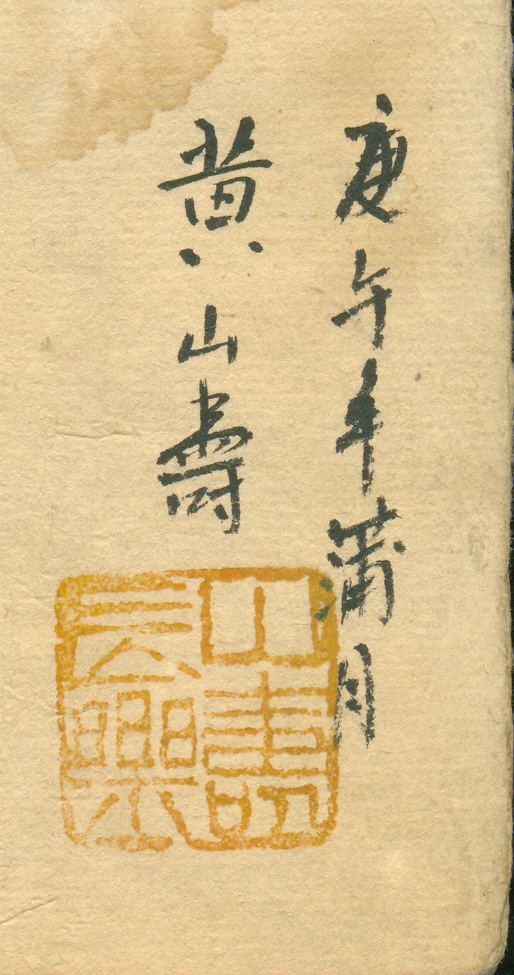 庚午年蒲月
黄山壽
山壽
長樂